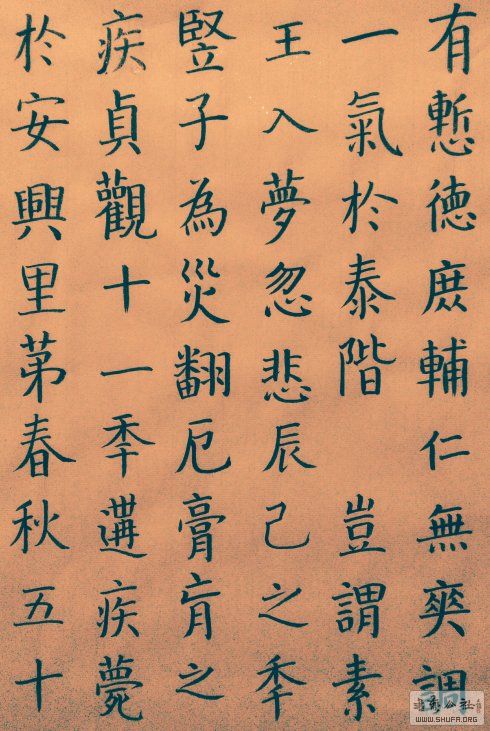 有慙徳庶輔仁無爽調
一氣於泰階 豈謂素
王入夢忽悲辰己之秊
竪子為災翻厄膏肓之
疾貞觀十一秊遘疾薨
於安興里苐春秋五十
公社
WWW.SHUFA.ORG